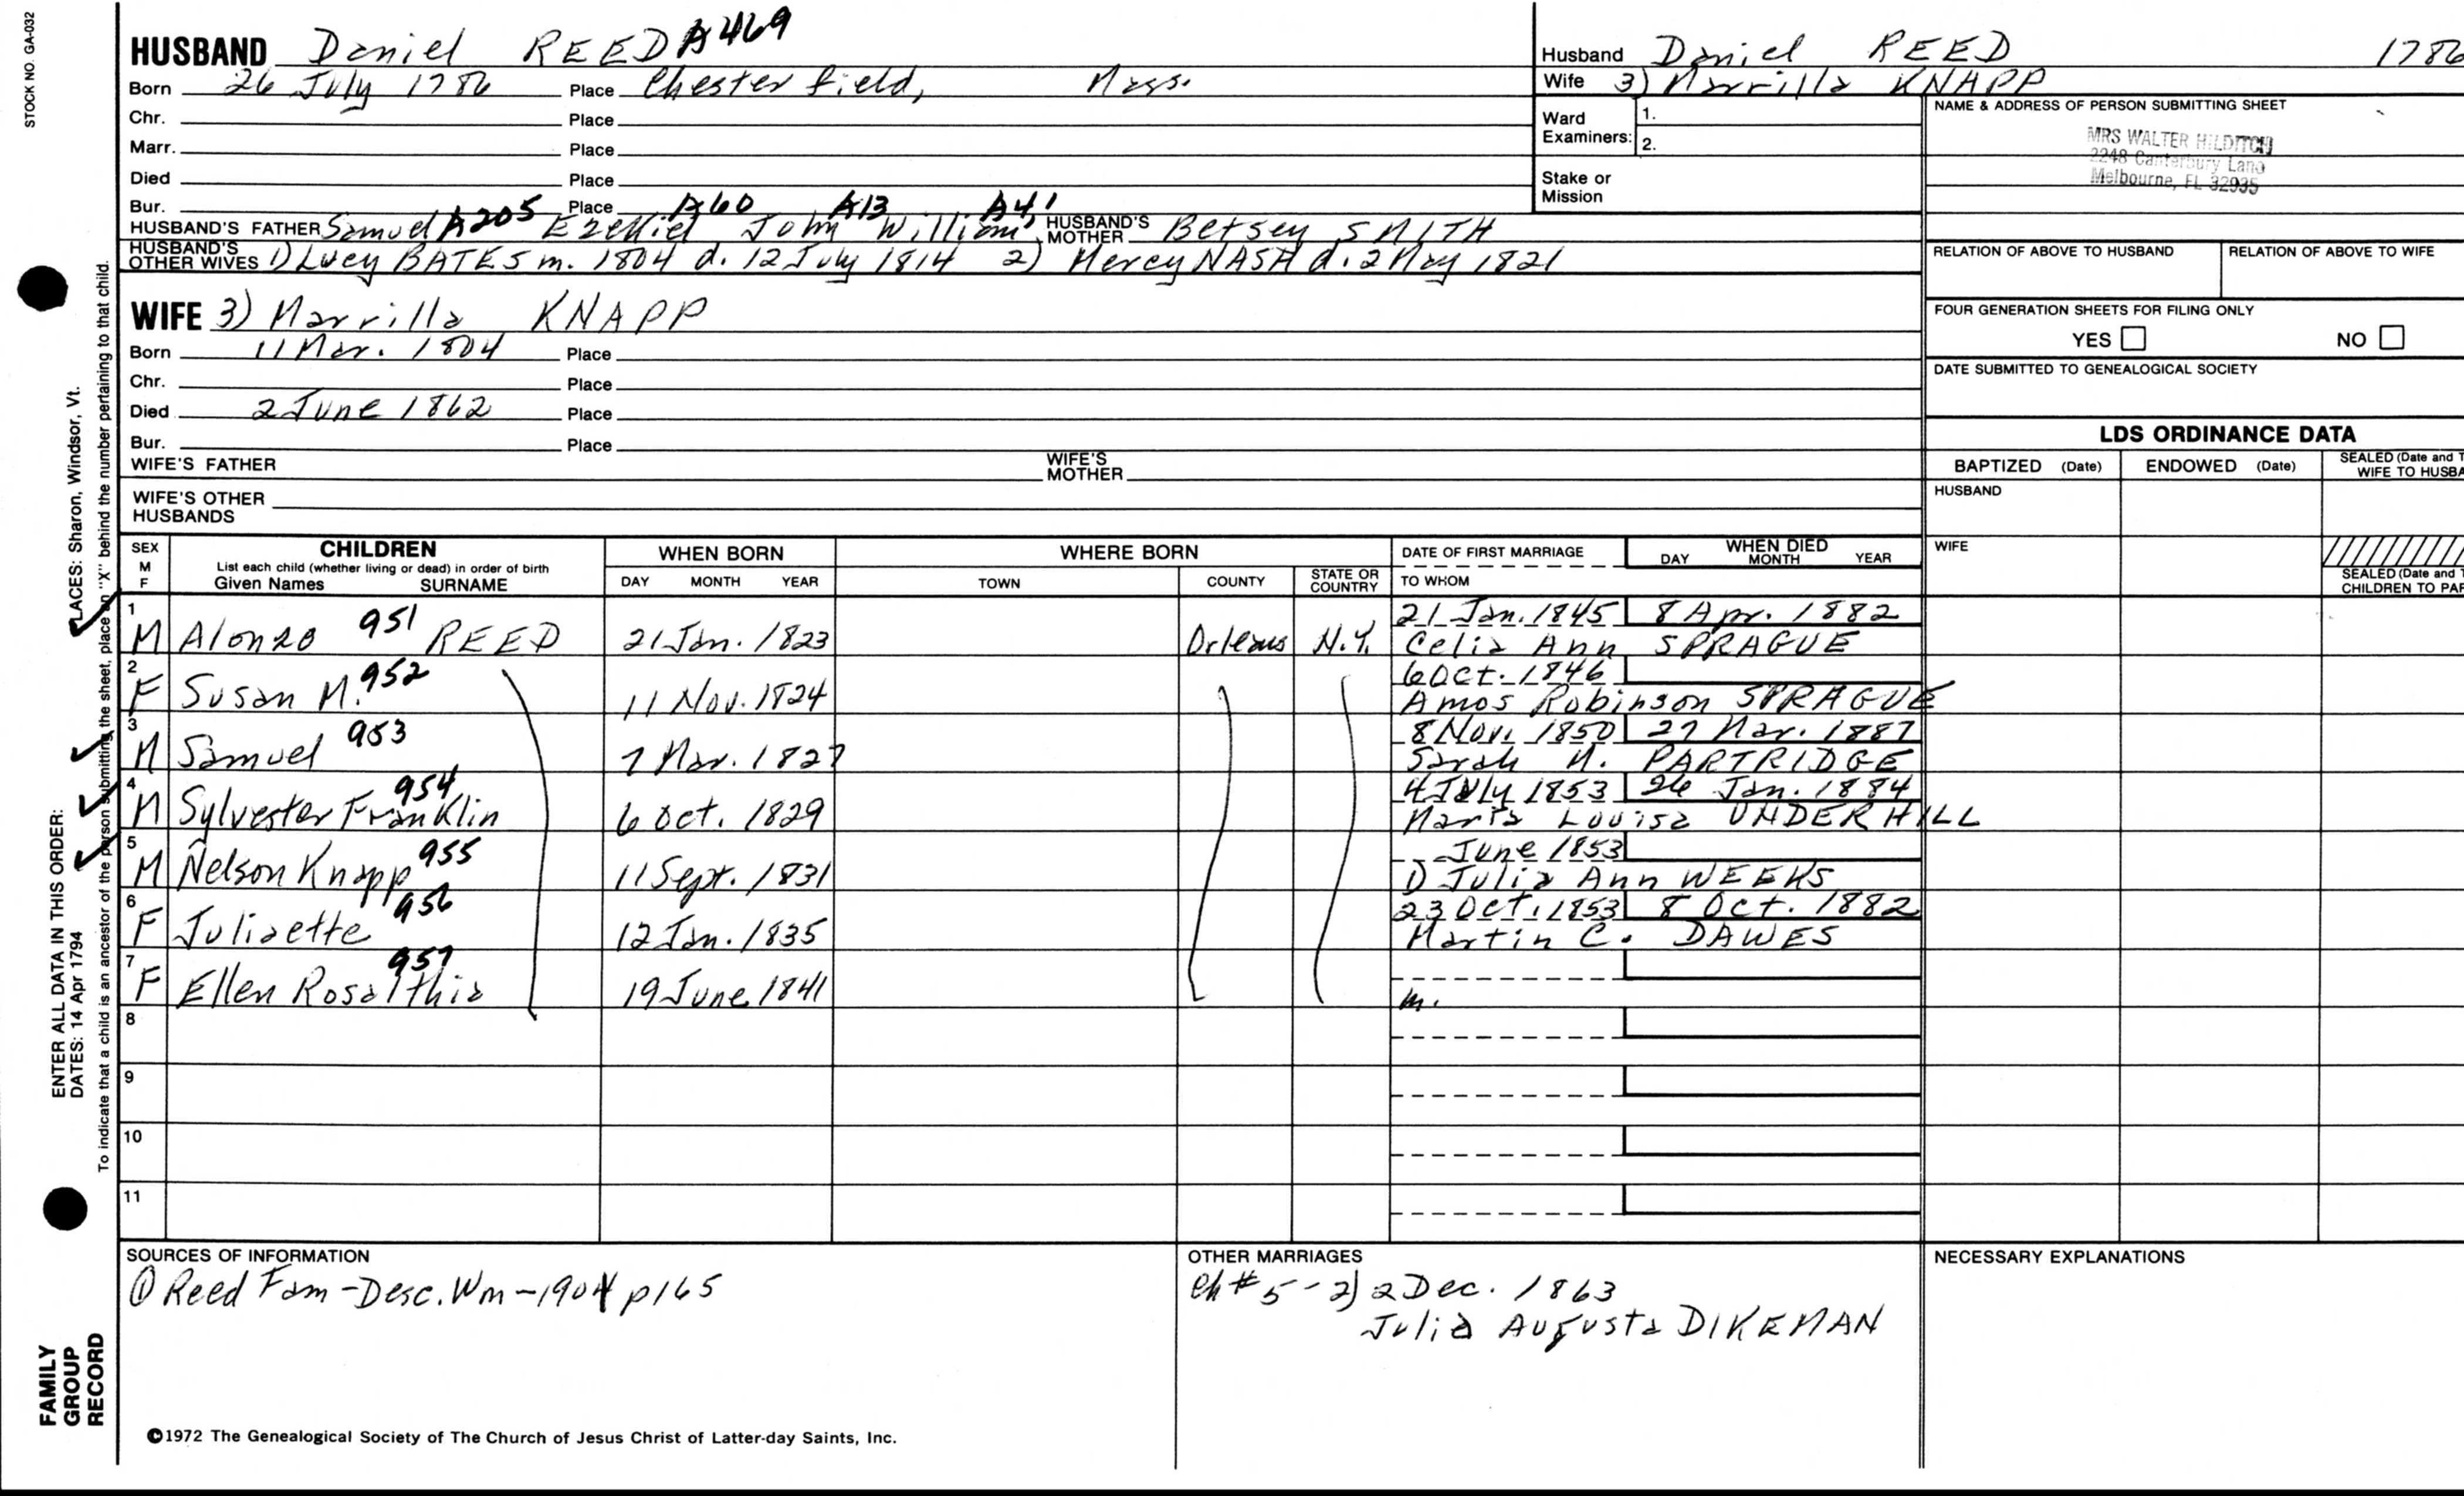 STOCK NO. GA-032
HUSBAND Daniel REED A469
Born 26 July 1786 Place Chesterfield, Mass.
Chr. Place
Marr. Place
Died Place
Bur. Place A60 A13 A4
HUSBAND'S FATHER Samuel A205 Ezekiel John William HUSBAND'S MOTHER Betsey SMITH
HUSBAND'S OTHER WIVES 1) Lucy BATES m. 1804 d. 12 July 1814 2) Mercy NASH d. 2 May 1821
WIFE 3) Marrilla KNAPP
Born 11 Mar. 1804 Place
Chr. Place
Died 2 June 1862 Place
Bur. Place
WIFE'S FATHER WIFE'S MOTHER
WIFE'S OTHER HUSBANDS
Husband Daniel REED 1786
Wife 3) Marrilla KNAPP
Ward Examiners: 1.
2.
Stake or Mission
NAME & ADDRESS OF PERSON SUBMITTING SHEET
MRS WALTER HILDITCH
2248 Canterbury Lane
Melbourne, FL 32935
RELATION OF ABOVE TO HUSBAND RELATION OF ABOVE TO WIFE
FOUR GENERATION SHEETS FOR FILING ONLY
YES NO
DATE SUBMITTED TO GENEALOGICAL SOCIETY
LDS ORDINANCE DATA
BAPTIZED (Date) ENDOWED (Date) SEALED (Date and T
WIFE TO HUSBA
HUSBAND
WIFE
SEALED (Date and T
CHILDREN TO PAR
SEX M F CHILDREN
List each child (whether living or dead) in order of birth
Given Names SURNAME
WHEN BORN
DAY MONTH YEAR
WHERE BORN
TOWN COUNTY STATE OR COUNTRY
DATE OF FIRST MARRIAGE
TO WHOM
WHEN DIED
DAY MONTH YEAR
1 21 Jan. 1845 8 Apr. 1882
M Alonzo 951 REED 21 Jan. 1823 Orleans N.Y. Celia Ann SPRAGUE
2 6 Oct. 1846
F Susan M. 952 11 Nov. 1824 Amos Robinson SPRAGUE
3 8 Nov. 1850 27 Mar. 1887
M Samuel 953 7 Mar. 1827 Sarah M. PARTRIDGE
4 4 July 1853 26 Jan. 1884
M Sylvester Franklin 954 6 Oct. 1829 Maria Louisa UNDERHILL
5 June 1853
M Nelson Knapp 955 11 Sept. 1831 1) Julia Ann WEEKS
6 23 Oct. 1853 8 Oct. 1882
F Juliaette 956 12 Jan. 1835 Martin C. DAWES
7
F Ellen Rosalthia 957 19 June 1841 m.
8
9
10
11
SOURCES OF INFORMATION
① Reed Fam - Desc. Wm - 1904 p165
OTHER MARRIAGES
Ch #5 - 2) 2 Dec. 1863
Julia Augusta DIKEMAN
NECESSARY EXPLANATIONS
©1972 The Genealogical Society of The Church of Jesus Christ of Latter-day Saints, Inc.
FAMILY GROUP RECORD
ENTER ALL DATA IN THIS ORDER:
DATES: 14 Apr 1794 PLACES: Sharon, Windsor, Vt.
To indicate that a child is an ancestor of the person submitting the sheet, place an "X" behind the number pertaining to that child.